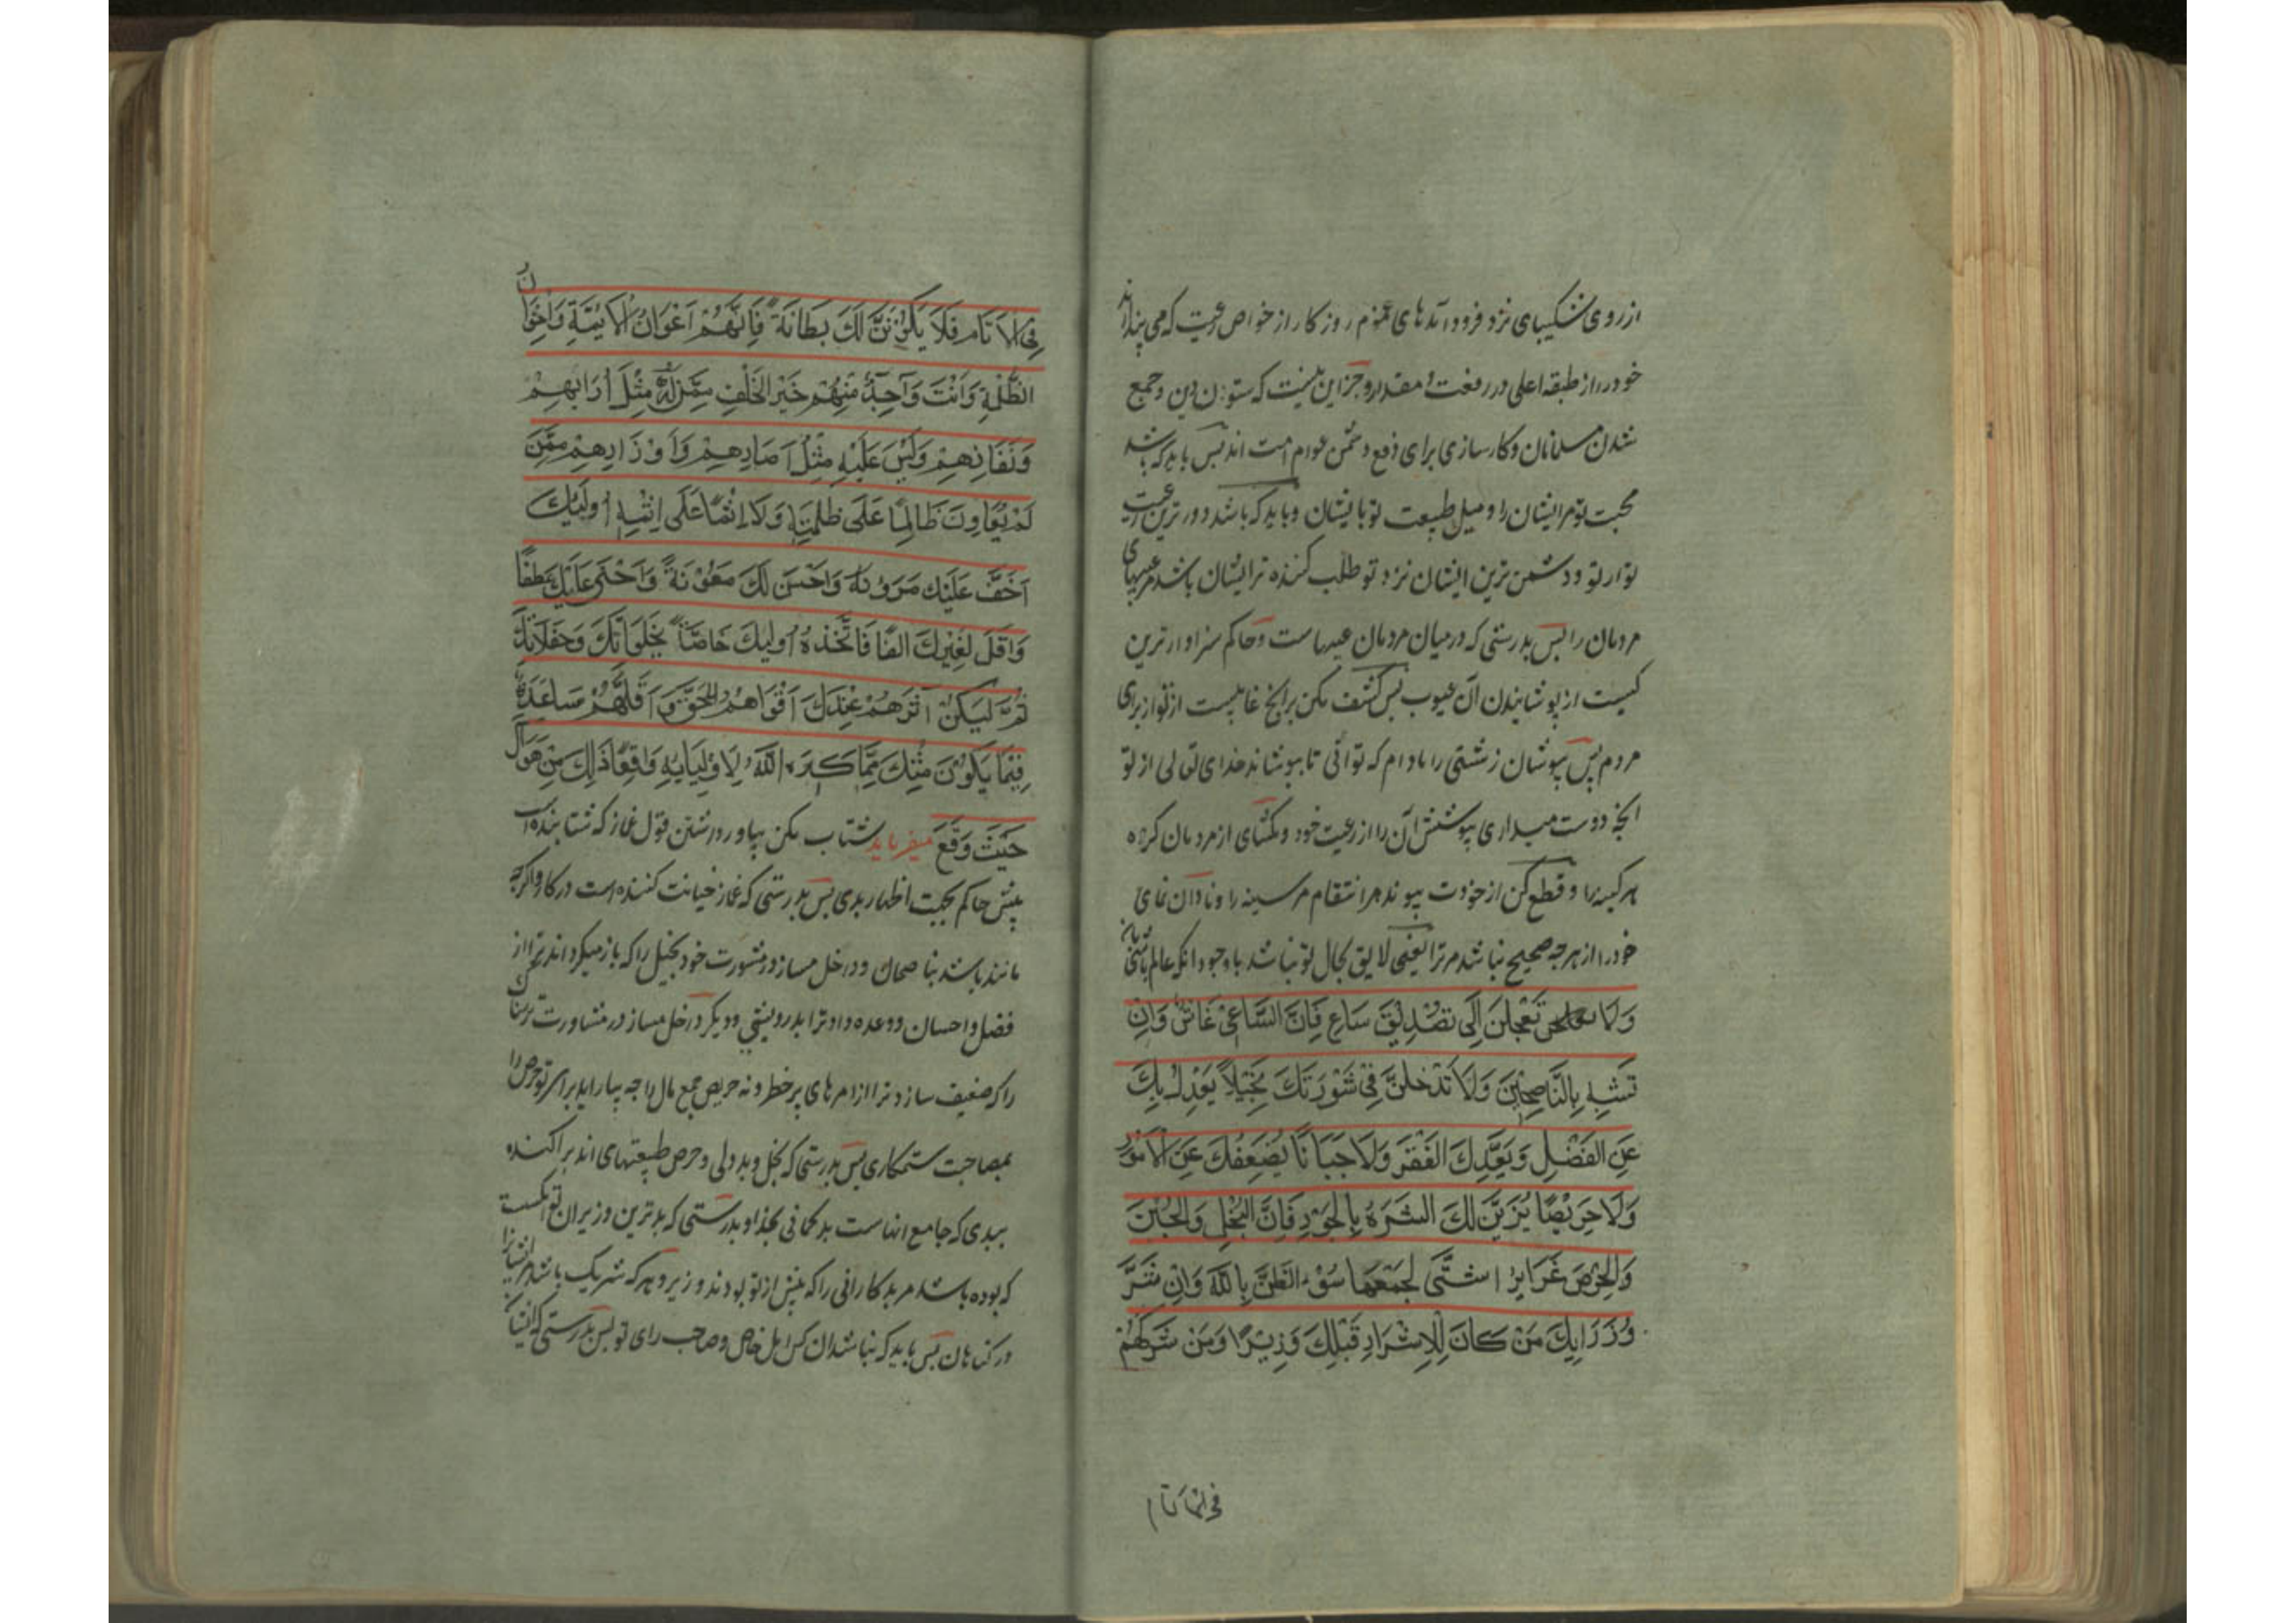 از روی شکیبای نزد فرود آمدهای عموم روزکار از خواص رعیت که می پندارند
خود را از طبقه اعلی در رفعت و مقدار و جز این نیست که ستون دین و جمع
شدن مسلمانان و کارسازی برای دفع دشمن عوام امت اند پس باید که باشد
محبت تو مر ایشان را و میل طبیعت تو با ایشان و باید که باشد دورترین رعیت
تو از تو و دشمن ترین ایشان نزد تو طلب کننده ترایشان باشد مر عیبهای
مردمان را پس بدرستی که در میان مردمان عیبهاست و حاکم سزاوارترین
کیست از پوشانیدن آن عیوب پس کشف مکن برانچ غایبست از تو از برای
مردم پس بپوشان زشتی را مادام که توانی تا بپوشاند خدای تعالی از تو
انچه دوست میداری پوشش آن را از رعیت خود و بگشای از مردمان کره
هر کینه را و قطع کن از خودت پیوند هر انتقام مر سینه را و نادان نمای
خود را از هرچه صحیح نباشد مر ترا یعنی لایق بحال تو نباشد با وجود انکه عالم باشی بان
وَلَا تَعْجَلَنَّ اِلَی تَصْدِیْقِ سَاعٍ فَاِنَّ السَّاعِیَ غَاشٌ وَاِنْ
تَشَبَّهَ بِالنَّاصِحِیْنَ وَلَا تُدْخِلَنَّ فِیْ شَوْرَتِكَ بَخِیْلًا یَعْدِلُ بِكَ
عَنِ الْفَضْلِ وَیَعِدُكَ الْفَقْرَ وَلَا جَبَانًا یُضْعِفُكَ عَنِ الْاُمُوْرِ
وَلَا حَرِیْصًا یُزَیِّنُ لَكَ الشَّرَهَ بِالْجَوْرِ فَاِنَّ الْبُخْلَ وَالْجُبْنَ
وَالْحِرْصَ غَرَایِزُ شَتَّی یَجْمَعُهَا سُوْءُ الظَّنِّ بِاللّٰهِ وَاِنَّ شَرَّ
وُزَرَایِكَ مَنْ كَانَ لِلْاَشْرَارِ قَبْلَكَ وَزِیْرًا وَمَنْ شَرِكَهُمْ
فی الاثام
فِی الْاَثَامِ فَلَا یَكُوْنَنَّ لَكَ بِطَانَةً فَاِنَّهُمْ اَعْوَانُ الْاَثِمَةِ وَاِخْوَانُ
الظَّلَمَةِ وَاَنْتَ وَاجِدٌ مِنْهُمْ خَیْرَ الْخَلَفِ مِمَّنْ لَهُ مِثْلُ اٰرَائِهِمْ
وَنَفَاذِهِمْ وَلَیْسَ عَلَیْهِ مِثْلُ اٰصَارِهِمْ وَاَوْزَارِهِمْ مِمَّنْ
لَمْ یُعَاوِنْ ظَالِمًا عَلَی ظُلْمِهِ وَلَا اٰثِمًا عَلَی اِثْمِهِ اُولَئِكَ
اَخَفُّ عَلَیْكَ مَؤُنَةً وَاَحْسَنُ لَكَ مَعُوْنَةً وَاَحْنَی عَلَیْكَ عَطْفًا
وَاَقَلُّ لِغَیْرِكَ اِلْفًا فَاتَّخِذْ اُولَئِكَ خَاصَّةً لِخَلَوَاتِكَ وَحَفَلَاتِكَ
ثُمَّ لْیَكُنْ اٰثَرُهُمْ عِنْدَكَ اَقْوَاهُمْ لِلْحَقِّ وَاَقَلَّهُمْ مُسَاعَدَةً
فِیْمَا یَكُوْنُ مِنْكَ مِمَّا كَرِهَ اللّٰهُ لِاَوْلِیَایِهِ وَاقِعًا ذَالِكَ مِنْ هَوَاكَ
حَیْثُ وَقَعَ میفرماید شتاب مکن بباور داشتن قول غماز که شتابنده است
پیش حاکم بجهت اظهار بدی پس بدرستی که غماز خیانت کننده است در کار و اگرچه
مانند باشد بناصحان و داخل مساز در مشورت خود بخیل را که باز میگرداند ترا از
فضل و احسان و وعده دهد ترا بدرویشی و دیگر داخل مساز در مشاورت ترسنا
را که ضعیف سازد ترا از امرهای پرخطر و نه حریص جمع مال را چه بیاراید برای تو حرص را
بمصاحبت ستمکاری پس بدرستی که بخل و بددلی و حرص طبیعتهای اند پراکنده
ببدی که جامع انهاست بدکمانی بخدا و بدرستی که بدترین وزیران تو انکست
که بوده باشد مر بدکارانی را که پیش از تو بودند وزیر و هرکه شریک باشد مر ایشانرا
در کناهان پس باید که نباشد ان کس اهل خاص و صاحب رای تو پس بدرستی که ایشان